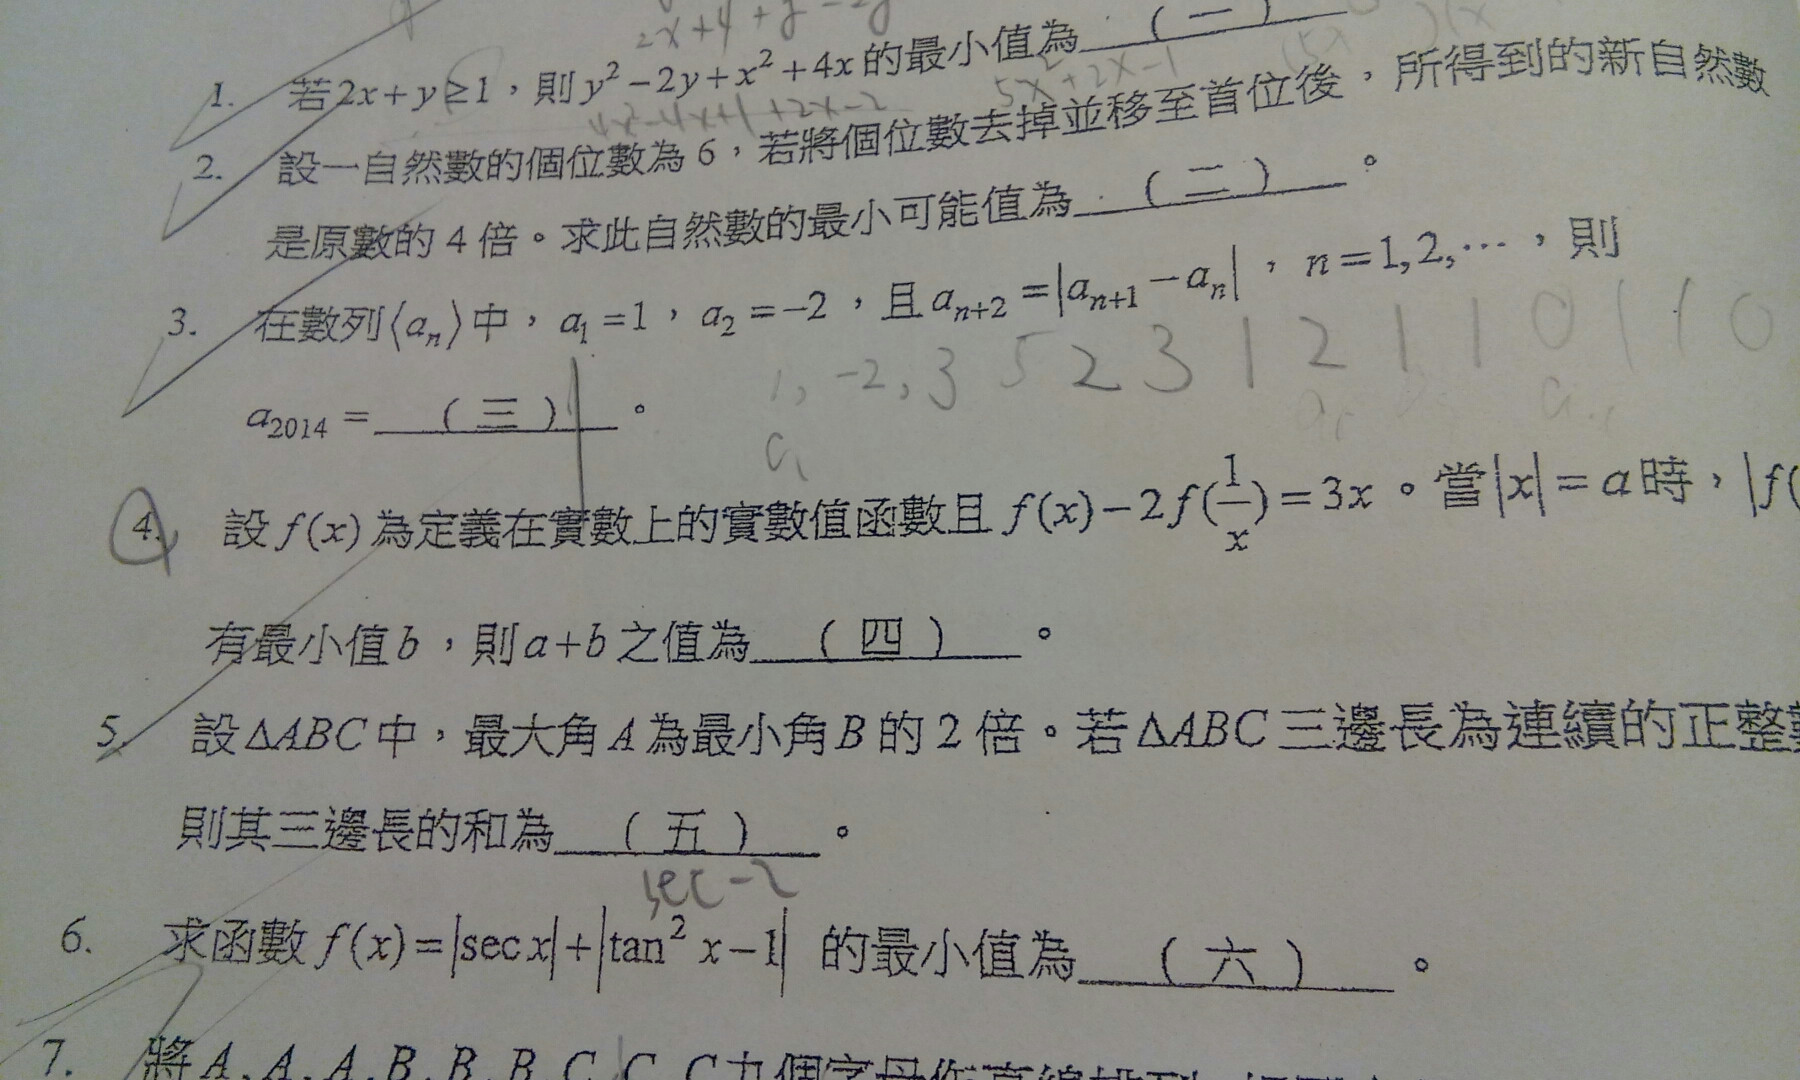 2x+4+y-2y
1. 若2x+y≥1，則y²-2y+x²+4x的最小值為 (一)
4x²-4x+1+2x-2 5x²+2x-1
2. 設一自然數的個位數為6，若將個位數去掉並移至首位後，所得到的新自然數
是原數的4倍。求此自然數的最小可能值為 (二) 。
3. 在數列⟨aₙ⟩中，a₁=1，a₂=-2，且aₙ₊₂=|aₙ₊₁-aₙ|，n=1,2,⋯，則
1, -2, 3 5 2 3 1 2 1 1 0 1 1 0
a₂₀₁₄= (三) 。
a₁
4. 設f(x)為定義在實數上的實數值函數且f(x)-2f(1/x)=3x。當|x|=a時，|f(
有最小值b，則a+b之值為 (四) 。
5. 設ΔABC中，最大角A為最小角B的2倍。若ΔABC三邊長為連續的正整
則其三邊長的和為 (五) 。
sec-2
6. 求函數f(x)=|sec x|+|tan² x-1| 的最小值為 (六) 。
7. 將A、A、A、B、B、B、C、C、C九個字母作直線排列，